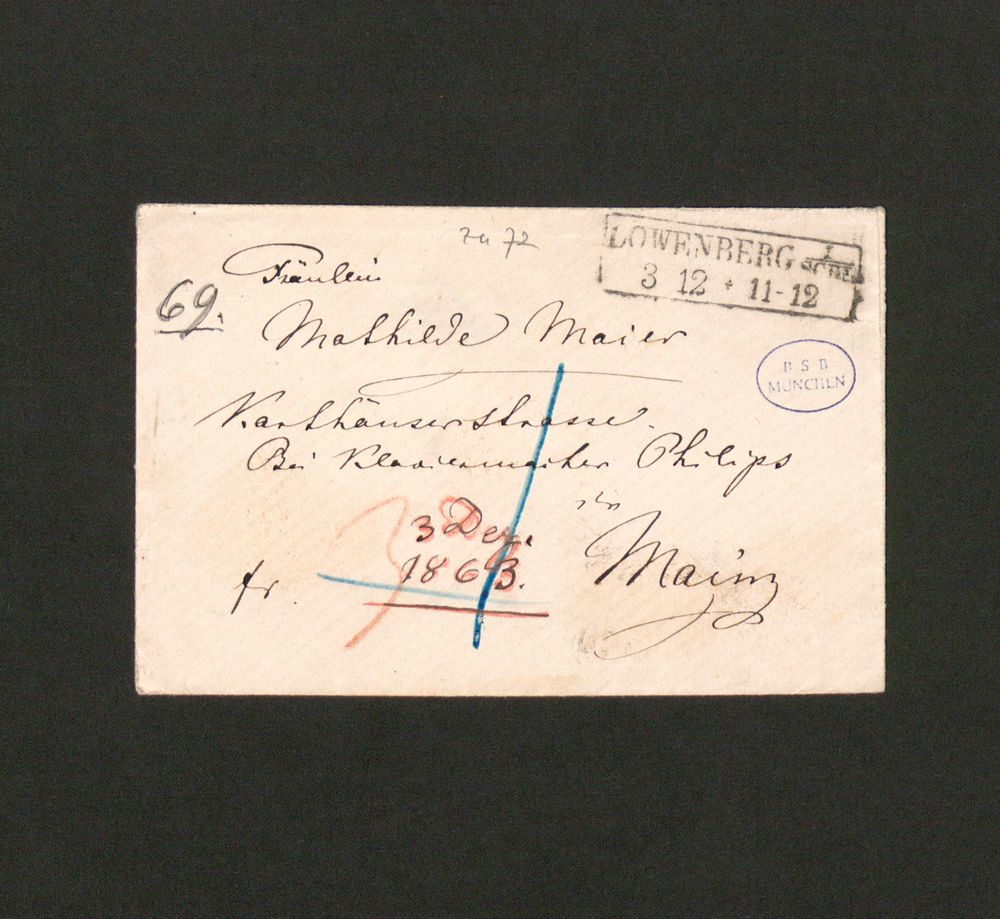 zu 72
LÖWENBERG i/SCHL
3 12 * 11-12
69.
Fräulein
Mathilde Maier
B S B
MÜNCHEN
Karthäuserstrasse.
Bei Klaviermacher Philips
in
3 Dez.
1863.
Mainz
fr.